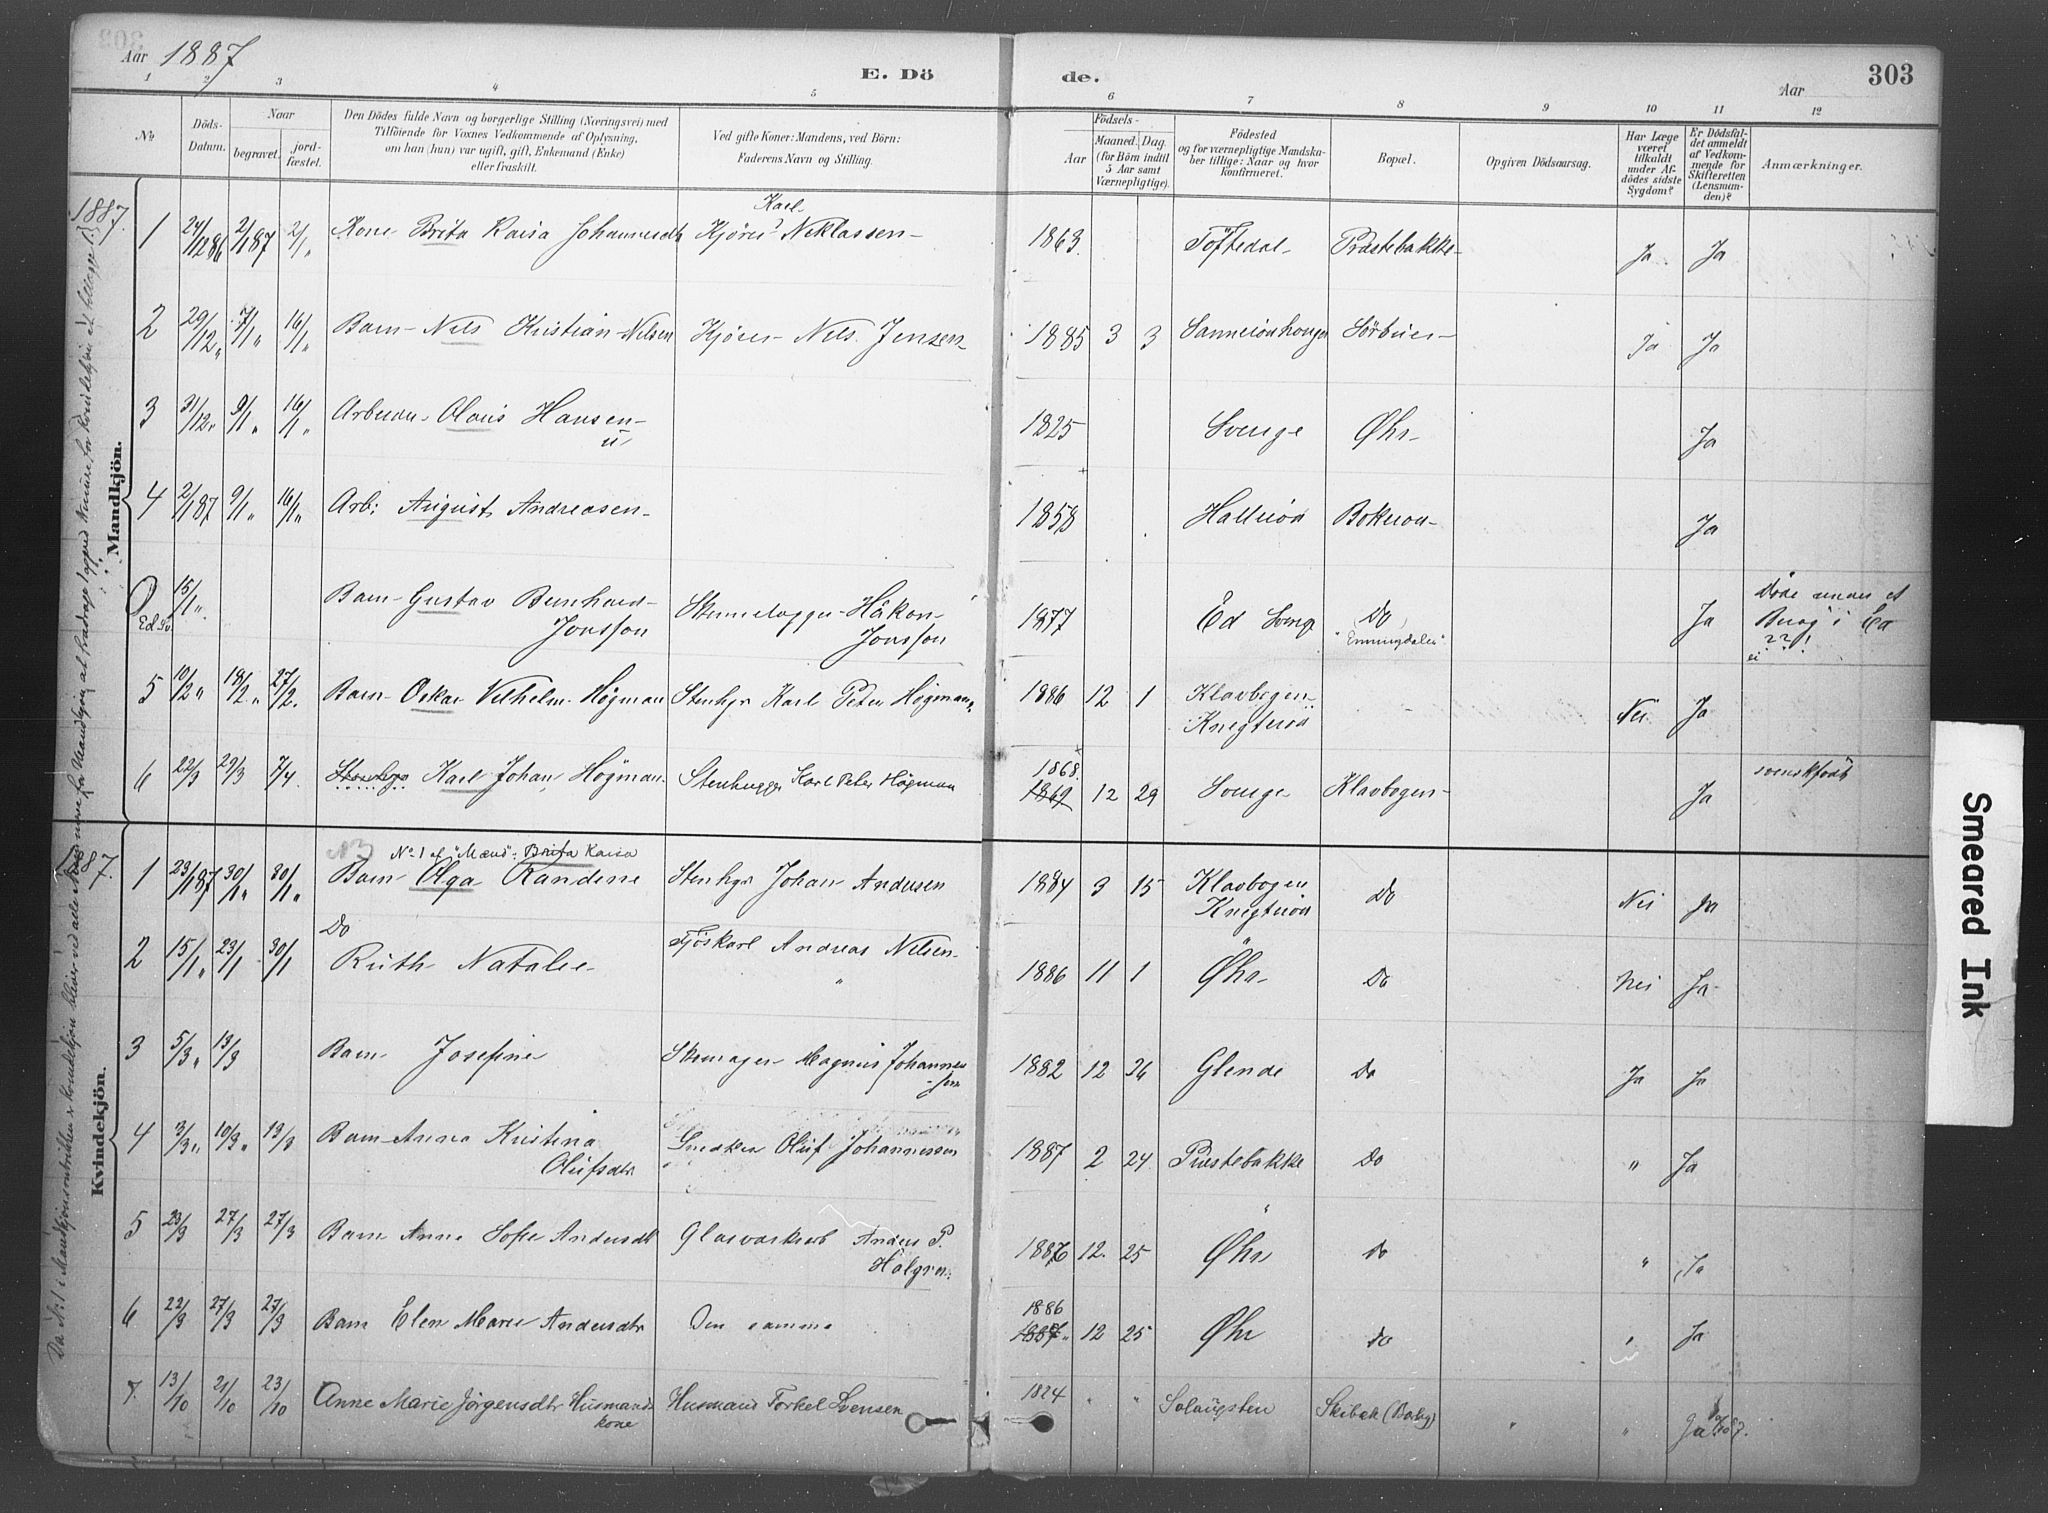 Aar 1887
E. Dö
de.
Aar
303
1 2 3 4 5 6 7 8 9 10 11 12
No.
Döds-Datum.
Naar
begravet.
jord-fæstet.
Den Dödes fulde Navn og borgerlige Stilling (Næringsvei) med
Tilföiende for Voxnes Vedkommende af Oplysning,
om han (hun) var ugift, gift, Enkemand (Enke)
eller fraskilt.
Ved gifte Koner: Mandens, ved Börn:
Faderens Navn og Stilling.
Födsels-
Aar
Maaned. Dag.
(for Börn indtil
5 Aar samt
Værnepligtige).
Födested
og for værnepligtige Mandska-
ber tillige: Naar og hvor
konfirmeret.
Bopæl.
Opgiven Dödsaarsag.
Har Læge
været
tilkaldt
under Af-
dödes sidste
Sygdom?
Er Dödsfal-
det anmeldt
af Vedkom-
mende for
Skifteretten
(Lensman-
den)?
Anmærkninger.
1887.
Mandkjön.
Karl
1 24/12 86 2/1 87 2/1 " Kone Brita Kaisa Johannesdtr Kjörer Niklassen 1863. Töftedal Præstebakke Ja Ja
2 29/12 " 7/1 " 16/1 " Barn Nils Kristian Nilsen Kjörer Nils Jensen 1885 3 3 Sörbuer Ja Ja
3 31/12 " 9/1 " 16/1 " Olaus Hansen 1825 Sverige Øhr Ja
u
4 2/1 87 9/1 " 16/1 " Arb: August Andreasen 1858 Ja
0 15/1 " Barn Gustav Bernhard Håkon 1877 Ed Sverige Do Ja Døde under et
Ed Sv. Jonsson Jonsson "Enningdalen" Besøg i Ed
5 10/2 " 19/2 " 27/2 Barn Oskar Vilhelm Högman Stenhgr Karl Peter Högman 1886 12 1 Klavbogen Nei Ja
Knegterød
6 22/3 29/3 7/4 Stenhgr Karl Johan Högman Stenhugger Karl Peter Högman 1868. 1869 12 29 Sverige Klavbogen Ja svenskfødt
1887.
Kvindekjön.
No 1 af "Mænd": Brita Kaisa
1 23/1 87 30/1 " 30/1 " Barn Olga Randine Stenhgr Johan Andersen 1884 3 15 Klavbogen Do Nei Ja
Knegterød
2 15/1 " 23/1 30/1 Do Ruth Natalie Fjöskarl Andreas Nilsen 1886 11 1 Øhr Do Nei Ja
3 5/3 " 13/3 Barn Josefine Skomager Magnus Johannes 1882 12 26 Glende Do Ja Ja
sen
4 3/3 " 10/3 " 13/3 Barn Anna Kristina Snedker Oluf Johannessen 1887 2 24 Præstebakke Do " Ja
Olufsdtr
5 23/3 27/3 27/3 Barn Anne Sofie Andersdtr Anders P. 1886 12. 25 Øhr do " Ja
Holgren
6 22/3 27/3 27/3 Barn Elen Marie Andersdtr Den samme 1886 1887 12 25 Øhr do " Ja
7. 13/10 21/10 23/10 Anne Marie Jørgensdtr Husmands Husmand Torkel Svensen 1824 " " Solaugsten Skibak (Borby) " " Ja
kone
Smeared Ink